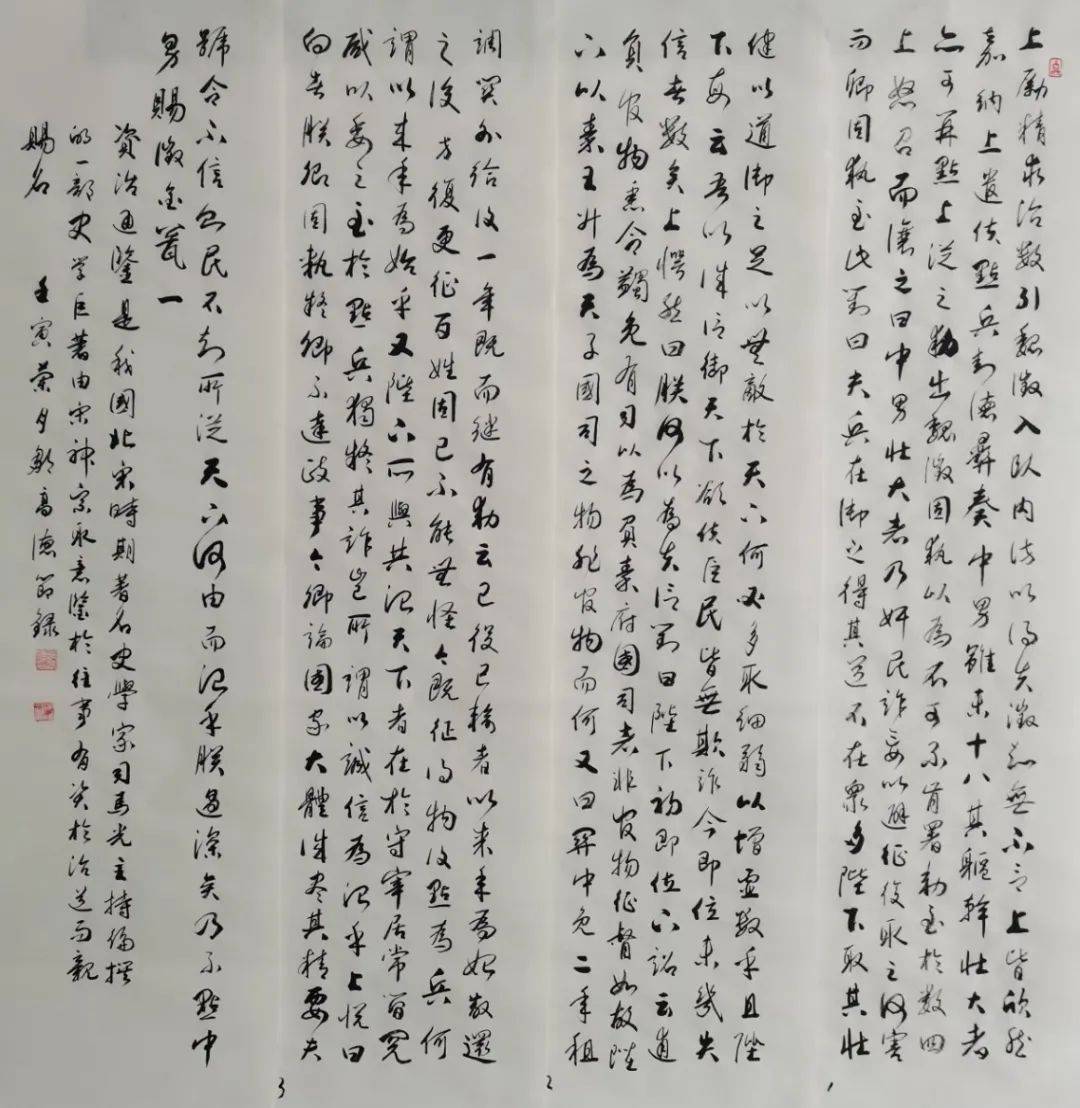 上励精求治數引魏徵入臥内访以得失徵知無不言上皆欣然
嘉納上遣使點兵封德彝奏中男雖未十八其軀幹壮大者
亦可并點上從之勅出魏徵固執以為不可不肯署勅至於數四
上怒召而讓之曰中男壮大者乃奸民詐妄以避征役取之何害
而卿固執至此對曰夫兵在御之得其道不在衆多陛下取其壮
健以道御之足以無敵於天下何必多取细弱以增虚數乎且陛
下每云吾以誠信御天下欲使臣民皆無欺詐今即位未幾失
信者數矣上愕然曰朕何以為失信對曰陛下初即位下詔云逋
負官物悉令蠲免有司以為負秦府國司者非官物征督如故陛
下以秦王升為天子國司之物非官物而何又曰関中免二年租
調関外给復一年既而继有勅云已役已輸者以来年為始散還
之後方復更征百姓固已不能無怪今既征得物復點為兵何
謂以来年為始乎又陛下所與共治天下者在於守宰居常簡閲
咸以委之至於點兵獨疑其詐豈所謂以誠信為治乎上悦曰
向者朕卿固執疑卿不達政事今卿論國家大體誠尽其精要夫
號令不信則民不知所從天下何由而治乎朕過深矣乃不點中
男賜徵金甕一
資治通鑒是我國北宋時期著名史學家司馬光主持编撰
的一部史学巨著由宋神宗取意鑒於往事有資於治道而親
賜名
壬寅荣月鄭高德節録
3
2
1